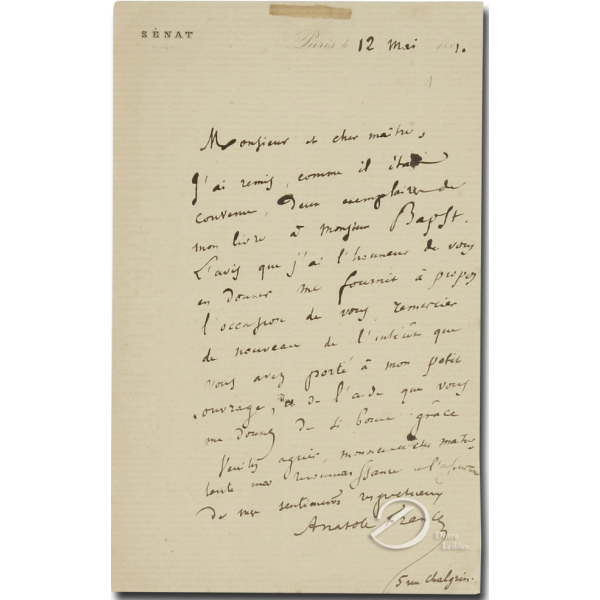 SÉNAT
Paris le 12 Mai 1881.
Monsieur et cher maître,
J'ai remis, comme il était
convenu, deux exemplaires de
mon livre à Monsieur Bapst.
L'avis que j'ai l'honneur de vous
en donner me fournit à propos
l'occasion de vous remercier
de nouveau de l'intérêt que
vous avez porté à mon petit
ouvrage, de l'aide que vous
me donnez de si bonne grâce
Veuillez agréer, monsieur et cher maître
toute ma reconnaissance et l'
de mes sentiments respectueux
Anatole France
5 rue Chalgrin.